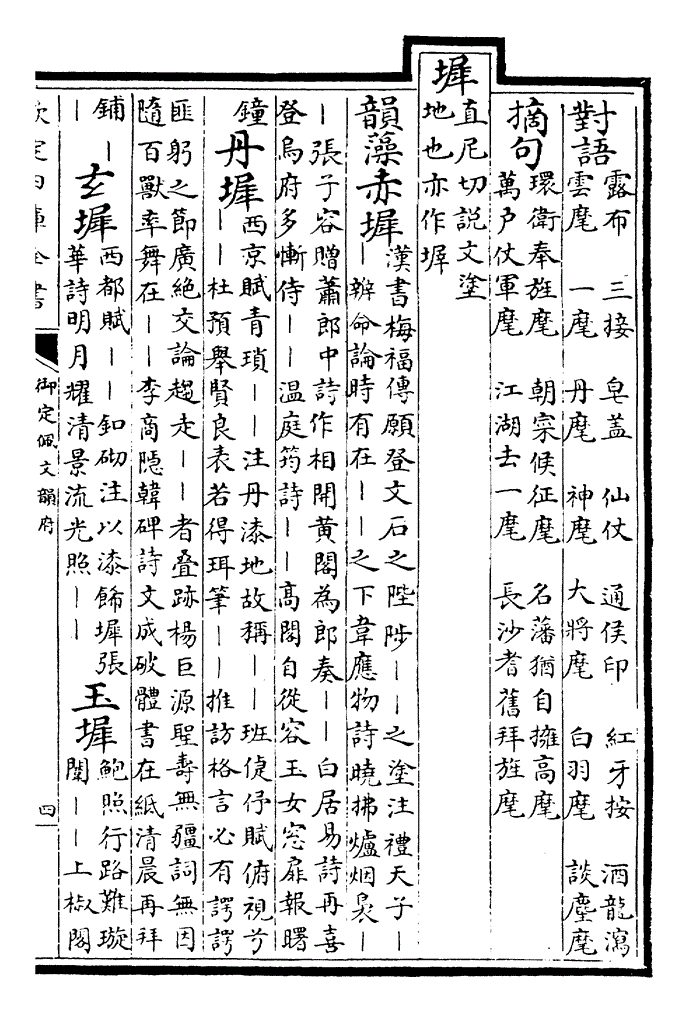 對語 露布 三接 皂蓋 仙仗 通侯印 紅牙按 酒龍瀉
雲麾 一麾 丹麾 神麾 大將麾 白羽麾 談麈麾
摘句 環衛奉旌麾 朝宗候征麾 名藩猶自擁高麾
萬戶仗軍麾 江湖去一麾 長沙耆舊拜旌麾
墀 直尼切説文塗
地也亦作墀
韻藻赤墀 漢書梅福傳願登文石之陛陟||之塗注禮天子|
|辨命論時有在||之下韋應物詩曉拂爐烟裊|
|張子容贈蕭郎中詩作相開黄閣為郎奏||白居易詩再喜
登烏府多慚侍||温庭筠詩||高閣自從容玉女窓扉報曙
鐘 丹墀 西京賦青瑣||注丹漆地故稱||班倢伃賦俯視兮
||杜預舉賢良表若得珥筆||推訪格言必有諤諤
匪躬之節廣絶交論趨走||者叠跡楊巨源聖壽無疆詞無因
隨百獸率舞在||李商隱韓碑詩文成破體書在紙清晨再拜
鋪|
| 玄墀 西都賦||釦砌注以漆飾墀張
華詩明月耀清景流光照|| 玉墀 鮑照行路難璇
閨||上椒閣
欽定四庫全書
御定佩文韻府
四